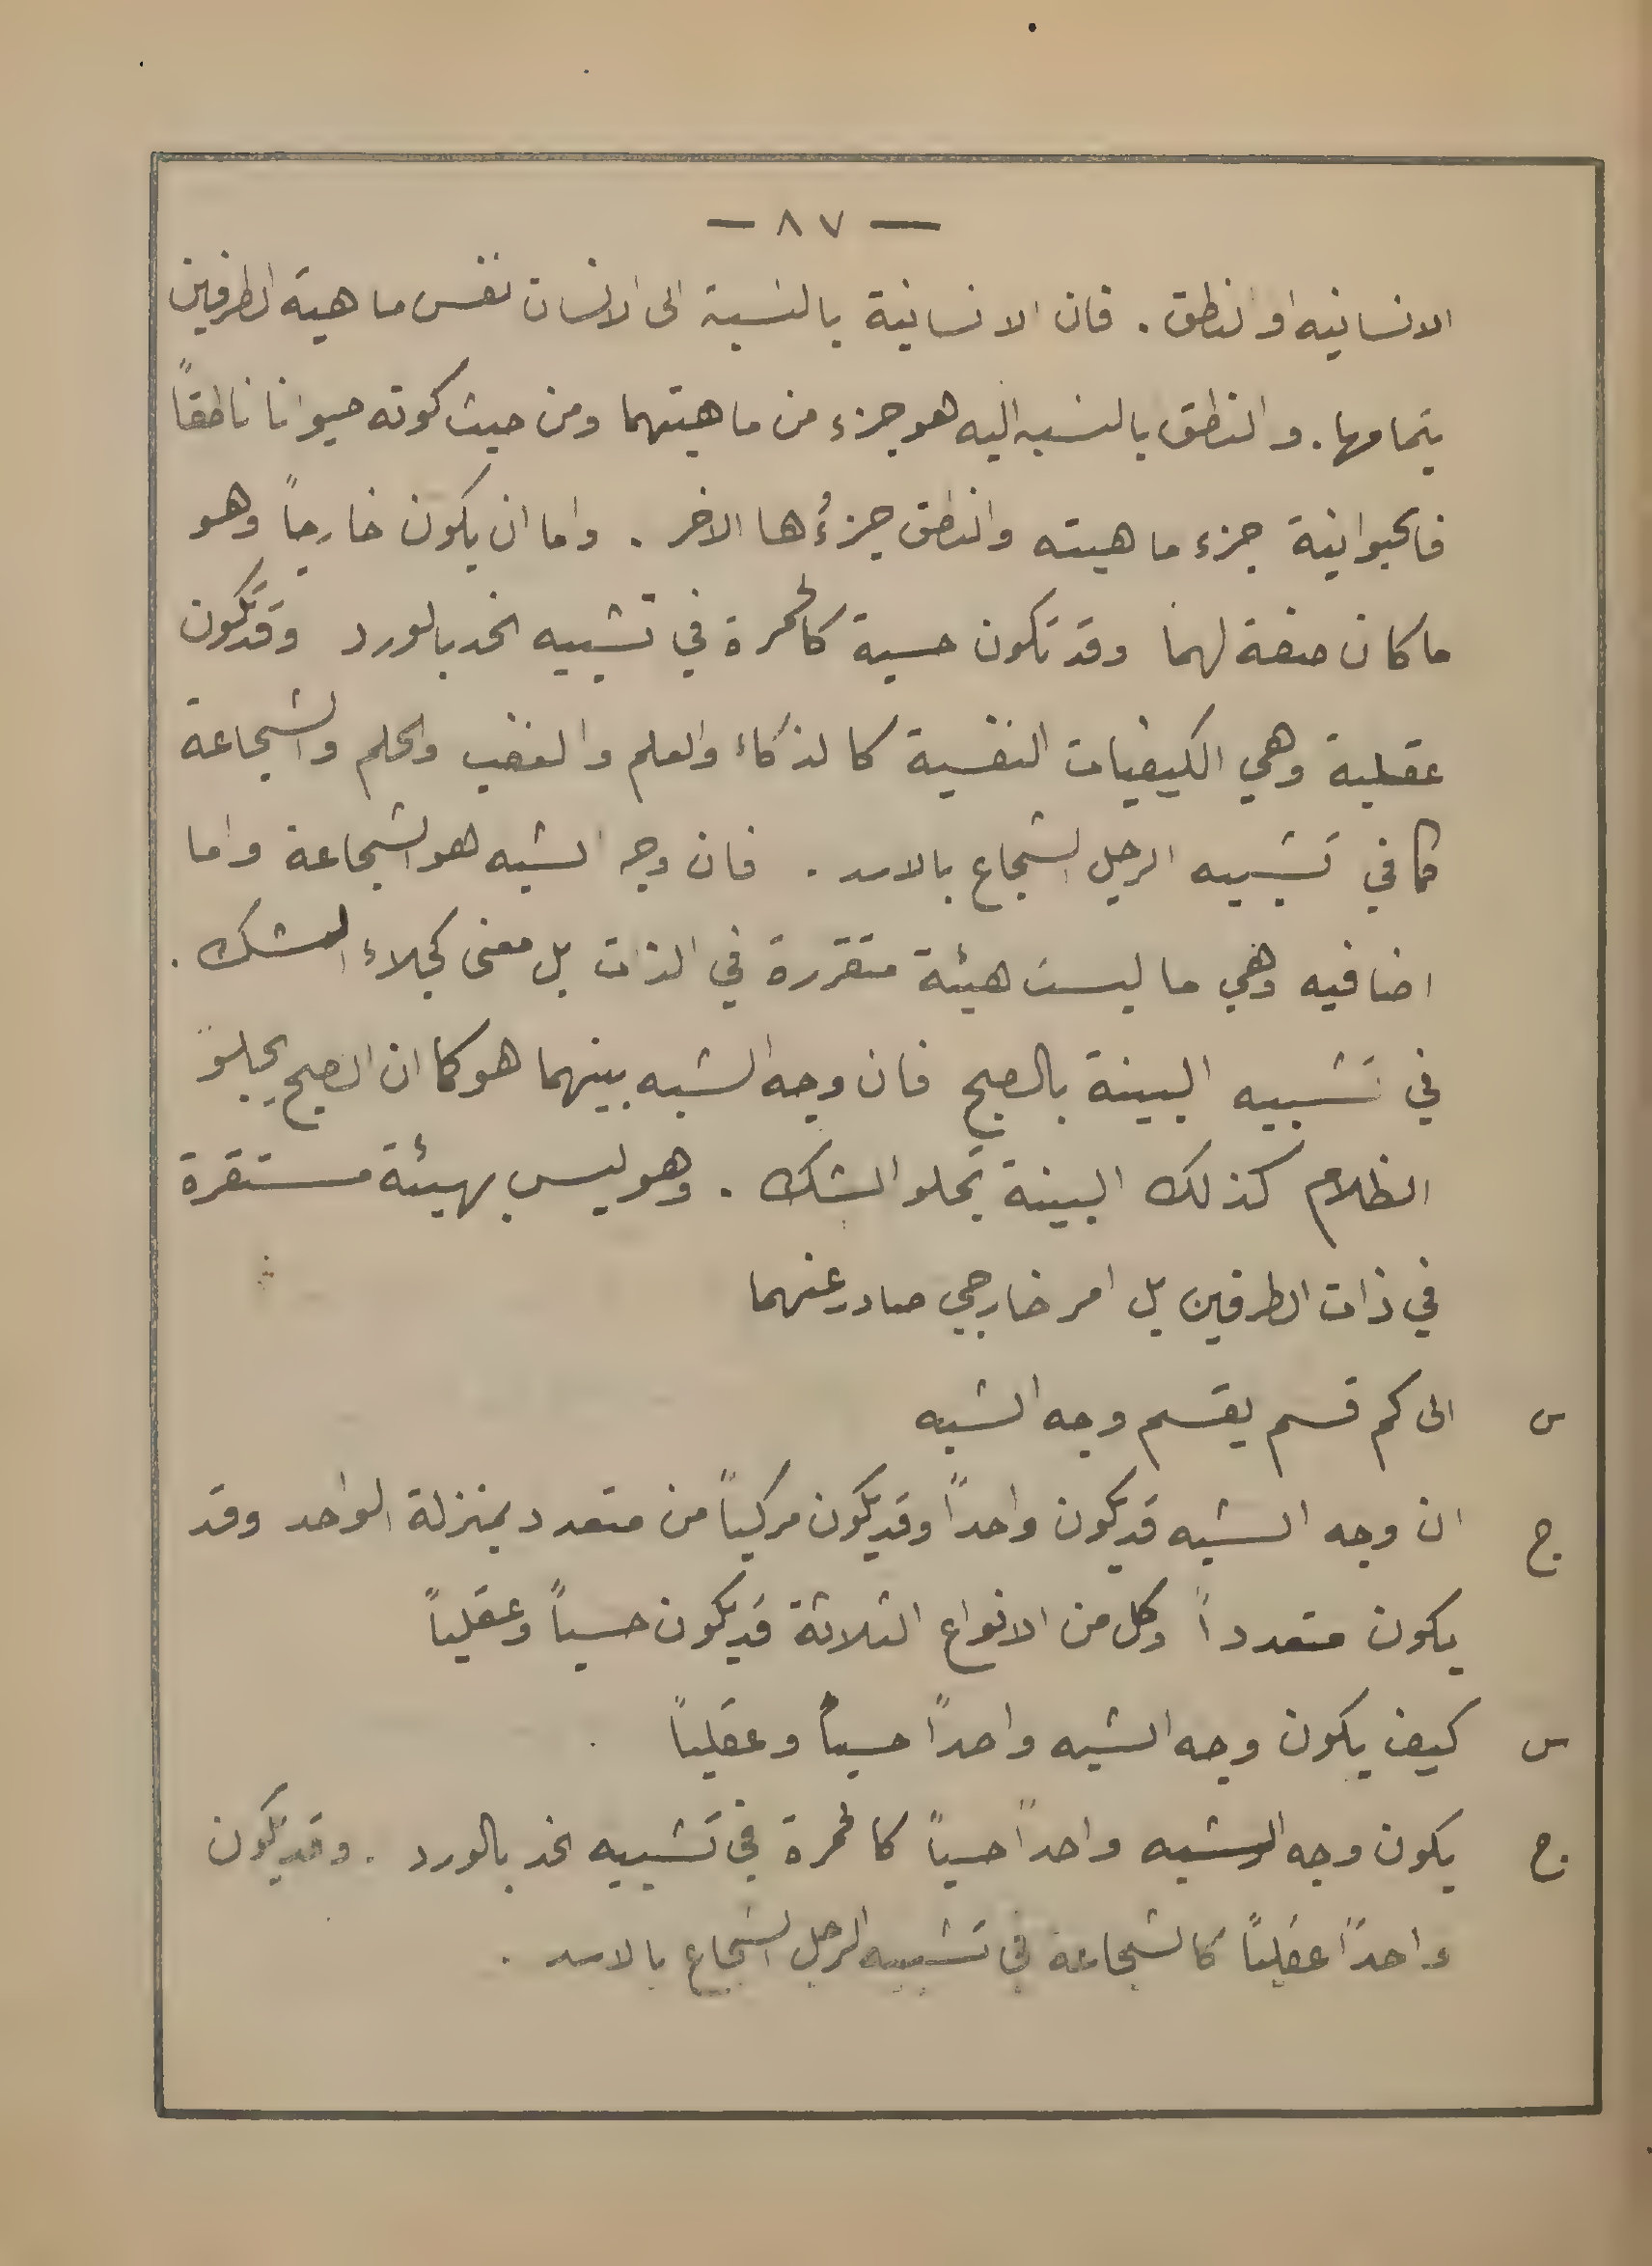 — ٨٧ —
الانسانيه او النطق . فان الانسانية بالنسبة الى الانسان نفس ماهية الطرفين
بتمامها . والنطق بالنسبه اليه هو جزء من ماهيتهما ومن حيث كونه حيوانا ناطقاً
فالحيوانية جزء ماهيته والنطق جزءُها الاخر . واما ان يكون خارجاً وهو
ما كان صفة لهما وقد تكون حسية كالحمرة في تشبيه الخد بالورد وقد تكون
عقلية وهي الكيفيات النفسية كالذكاء والعلم والغضب والحلم والشجاعة
كما في تشبيه الرجل الشجاع بالاسد . فان وجه الشبه هو الشجاعة واما
اضافيه وهي ما ليست هيئة متقررة في الذات بل معنى كجلاء الشك .
في تشبيه البينة بالصبح فان وجه الشبه بينهما هو كما ان الصبح يجلو
الظلام كذلك البينة تجلو الشك . وهو ليس بهيئة مستقرة
في ذات الطرفين بل امر خارجي صادر عنهما
س الى كم قسم يقسم وجه الشبه
ج ان وجه الشبه قد يكون واحداً وقد يكون مركباً من متعدد بمنزلة الواحد وقد
يكون متعدداً وكل من الانواع الثلاثة قد يكون حسياً وعقلياً
س كيف يكون وجه الشبه واحداً حسياً وعقلياً
ج يكون وجه الشبه واحداً حسياً كالحمرة في تشبيه الخد بالورد . وقد يكون
واحداً عقلياً كالشجاعة في تشبيه الرجل الشجاع بالاسد .